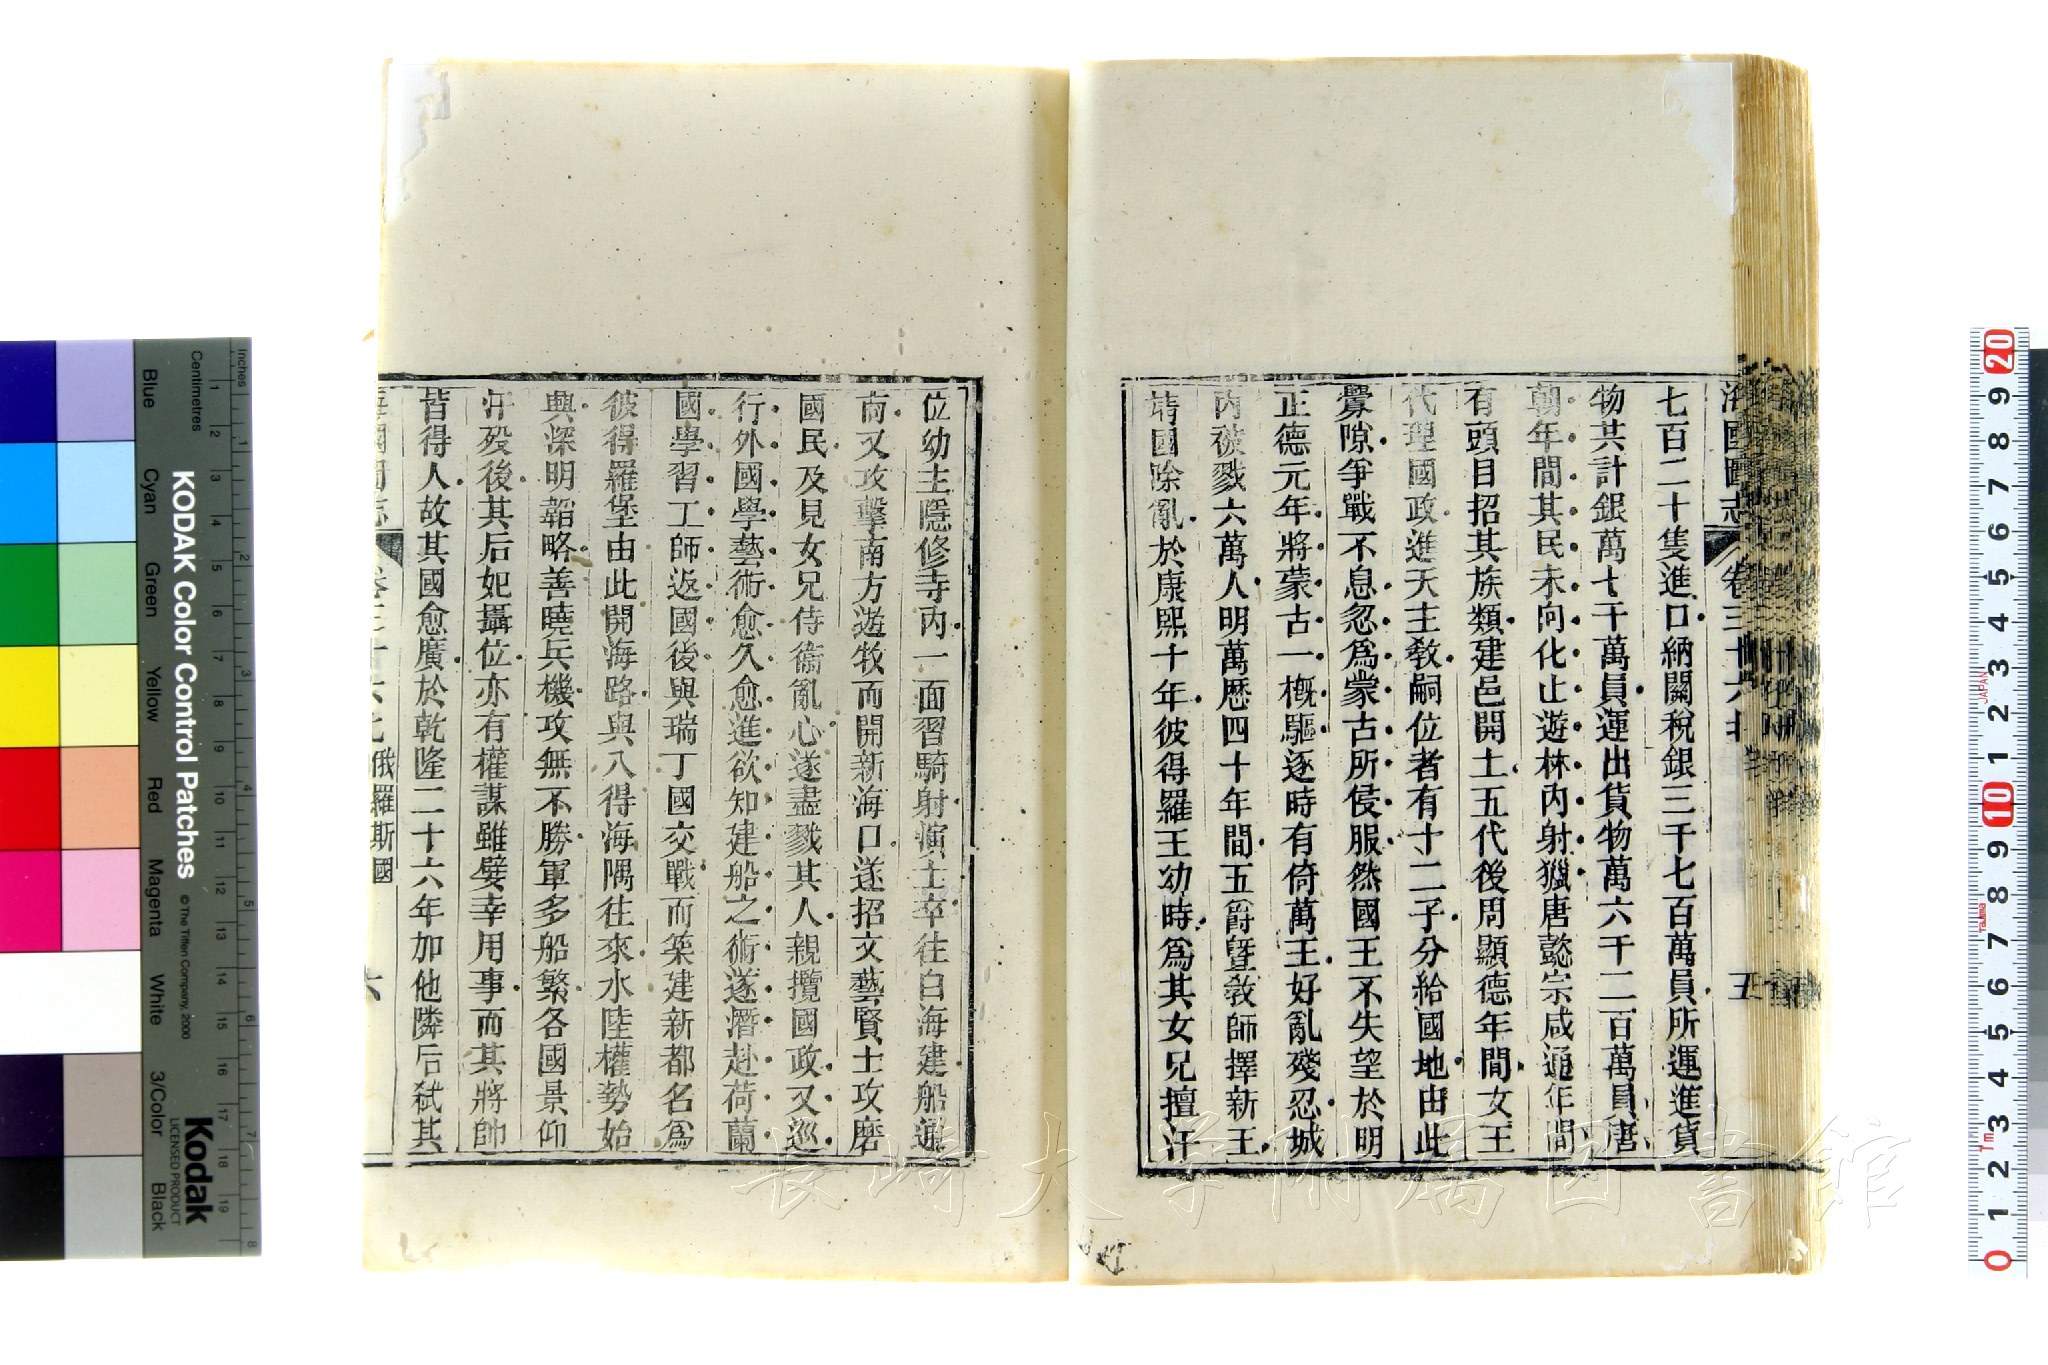 海國圖志
卷三十六北
五
七百二十隻進口納關稅銀三千七百萬員所運進貨
物共計銀萬七千萬員運出貨物萬六千二百萬員唐
朝年間其民未向化止遊林內射獵唐懿宗咸通年間
有頭目招其族類建邑開土五代後周顯德年間女王
代理國政進天主教嗣位者有十二子分給國地由此
釁隙爭戰不息忽爲蒙古所侵服然國王不失望於明
正德元年將蒙古一概驅逐時有倚萬王好亂殘忍城
內被戮六萬人明萬歷四十年間五爵暨教師擇新王
靖國除亂於康熙十年彼得羅王幼時爲其女兄擅汗
位幼主隱修寺內一面習騎射演士卒往白海建船遍
南又攻擊南方遊牧而開新海口遂招文藝賢士攻磨
國民及見女兄侍衞亂心遂盡戮其人親攬國政又巡
行外國學藝術愈久愈進欲知建船之術遂潛赴荷蘭
國學習工師返國後與瑞丁國交戰而築建新都名爲
彼得羅堡由此開海路與八得海隅往來水陸權勢始
興深明韜略善曉兵機攻無不勝軍多船繁各國景仰
汗歿後其后妃攝位亦有權謀雖嬖幸用事而其將帥
皆得人故其國愈廣於乾隆二十六年加他隣后弒其
海國圖志
卷三十六北
俄羅斯國
六
KODAK Color Control Patches
© The Tiffen Company, 2000
Kodak
LICENSED PRODUCT
Inches
Centimetres
Blue
Cyan
Green
Yellow
Red
Magenta
White
3/Color
Black
長崎大学附属図書館
JAPAN